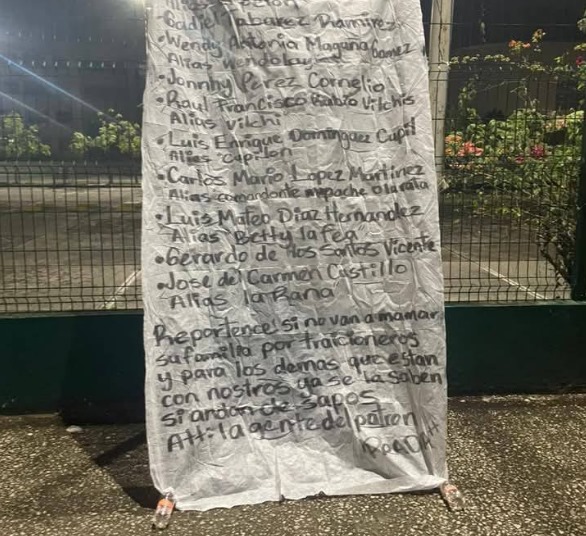 Alias
•Gadiel Tabarez Dramirez
•Wendy Antonia Magaña Gomez
Alias Wendolay
•Jonnhy Perez Cornelio
•Raul Francisco Rubio Vilchis
Alias vilchi
•Luis Enrique Dominguez Cupil
Alias Cupilon
•Carlos Mario Lopez Martinez
Alias comandante mapache o la rata
•Luis Mateo Diaz Hernandez
"Alias Betty la fea"
•Gerardo de los Santos Vicente
•Jose del Carmen Castillo
"Alias la Rana"
Reportence! si no van a mamar
su familia por traicioneros
y para los demas que estan
con nostros ya se la saben
si andan de sapos
Att: la gente del patron